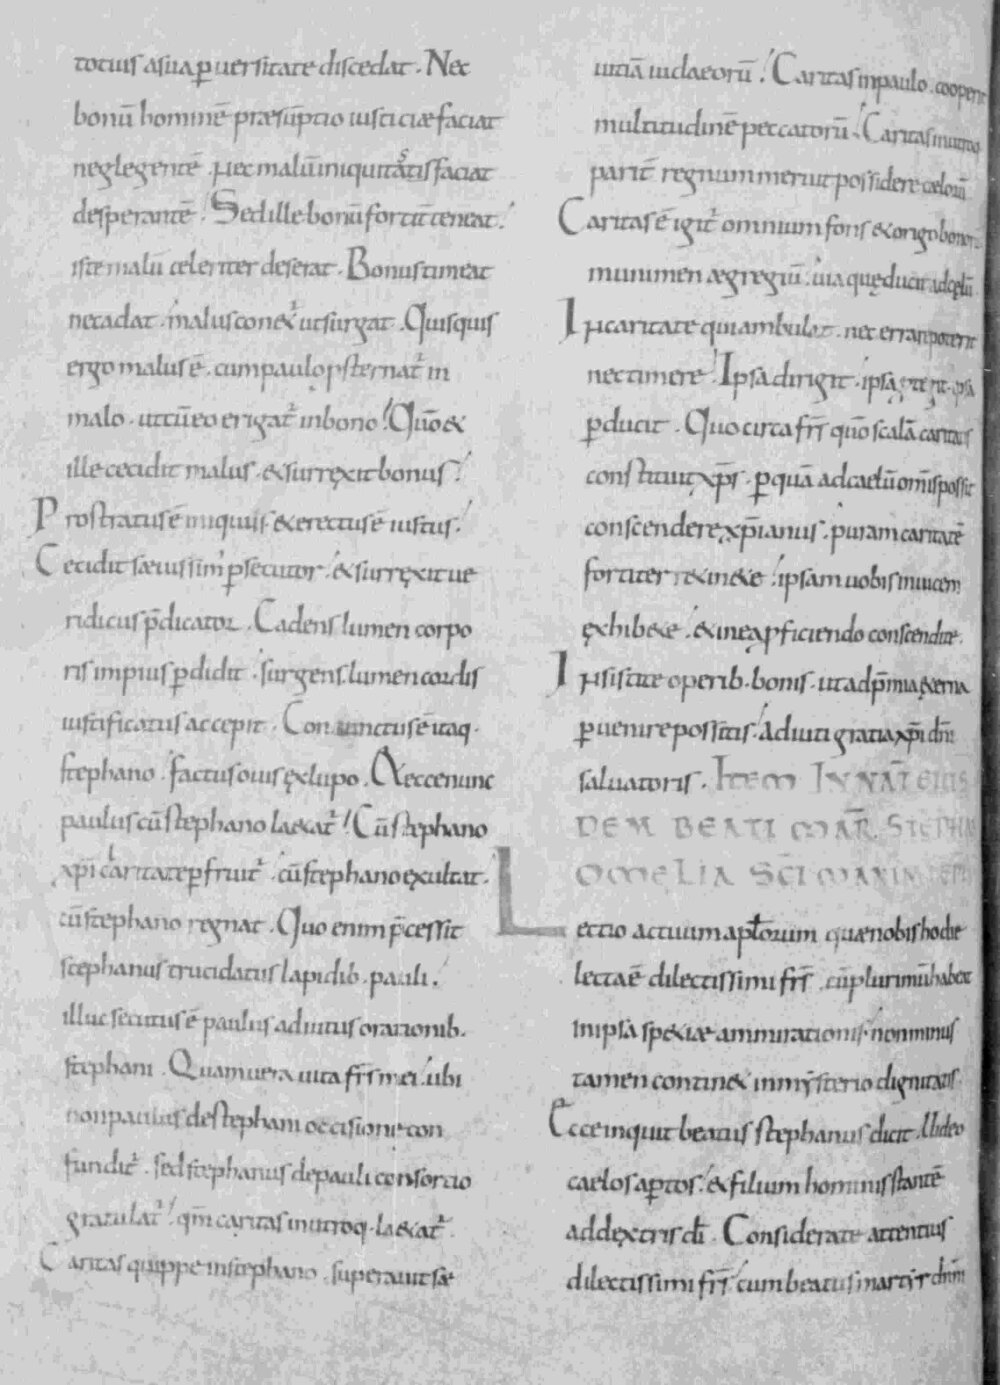 totius a sua ꝑuersitate discedat · Nec
bonū hominē præsūptio iusticiæ faciat
neglegentē · nec malū iniquitatis faciat
desperantē · Sed ille bonū fortit̄ teneat ·
iste malū celeriter deserat · Bonus timeat
ne cadat · malus conet̄ ut surgat · Quisquis
ergo malus ē · cum paulo ꝓsternat̄ in
malo · ut cū eo erigat̄ in bono · Quō &
ille cecidit malus · & surrexit bonus ·
Prostratus ē iniquus · & erectus ē iustus ·
Cecidit sæuissim' ꝑsecutor · & surręxit ue
ridicus p̄dicator · Cadens lumen corpo
ris impius ꝑdidit · surgens lumen cordis
iustificatus accepit · Coniunctus ē itaq·
stephano · factus ouis ęx lupo · & ecce nunc
paulus cū stephano læ&at̄ · Cū stephano
xp̄i caritate ꝑfruit̄ · cū stephano exultat ·
cū stephano regnat · Quo enim p̄cessit
stephanus trucidatus lapidib· pauli ·
illuc secutus ē paulus adiutus orationib·
stephani · Quam uera uita fr̄s mei · ubi
non paulus de stephani occisione con
fundit̄ · sed stephanus de pauli consortio
gratulat̄ · qm̄ caritas in utroq· læ&at̄ ·
Caritas quippe in stephano · superauit sæ
uitiā iudaeorū · Caritas in paulo · cooperit
multitudinē peccatorū · Caritas in utroq·
parit̄ regnum meruit possidere cælorū
Caritas ē igit̄ omnium fons & origo bonorū
munimen ægregiū · uia quę ducit ad cęlū ·
In caritate qui ambulat · nec errare poterit
nec timere · Ipsa dirigit · ipsa ꝓtegit · ipsa
ꝑducit · Quo circa fr̄s quō scalā caritatis
constituit xp̄s · ꝑ quā ad caelū om̄is possit
conscendere xp̄ianus · puram caritatē
fortiter r&in&e · ipsam uobis inuicem
ęxhib&e · & in ea ꝓficiendo conscendite ·
Insistite operib· bonis · ut ad p̄mia æterna
ꝑuenire possitis · Adiuti gratia xp̄i dn̄i
saluatoris · ITEM IN NAT̄ EIUS
DEM BEATI MAR̄ STEPHANI
OMELIA SC̄I MAXIMI EP̄I
Lectio actuum apl̄orum quæ nobis hodie
lecta ē dilectissimi fr̄s · cū plurimū habeat
in ipsa specie ammirationis · non minus
tamen contin& in mysterio dignitatis
Ecce inquit beatus stephanus dicit · Uideo
caelos aꝑtos · & filium hominis stantē
ad dęxtris dī · Considerate attentius
dilectissimi fr̄s · cum beatus martyr dn̄m